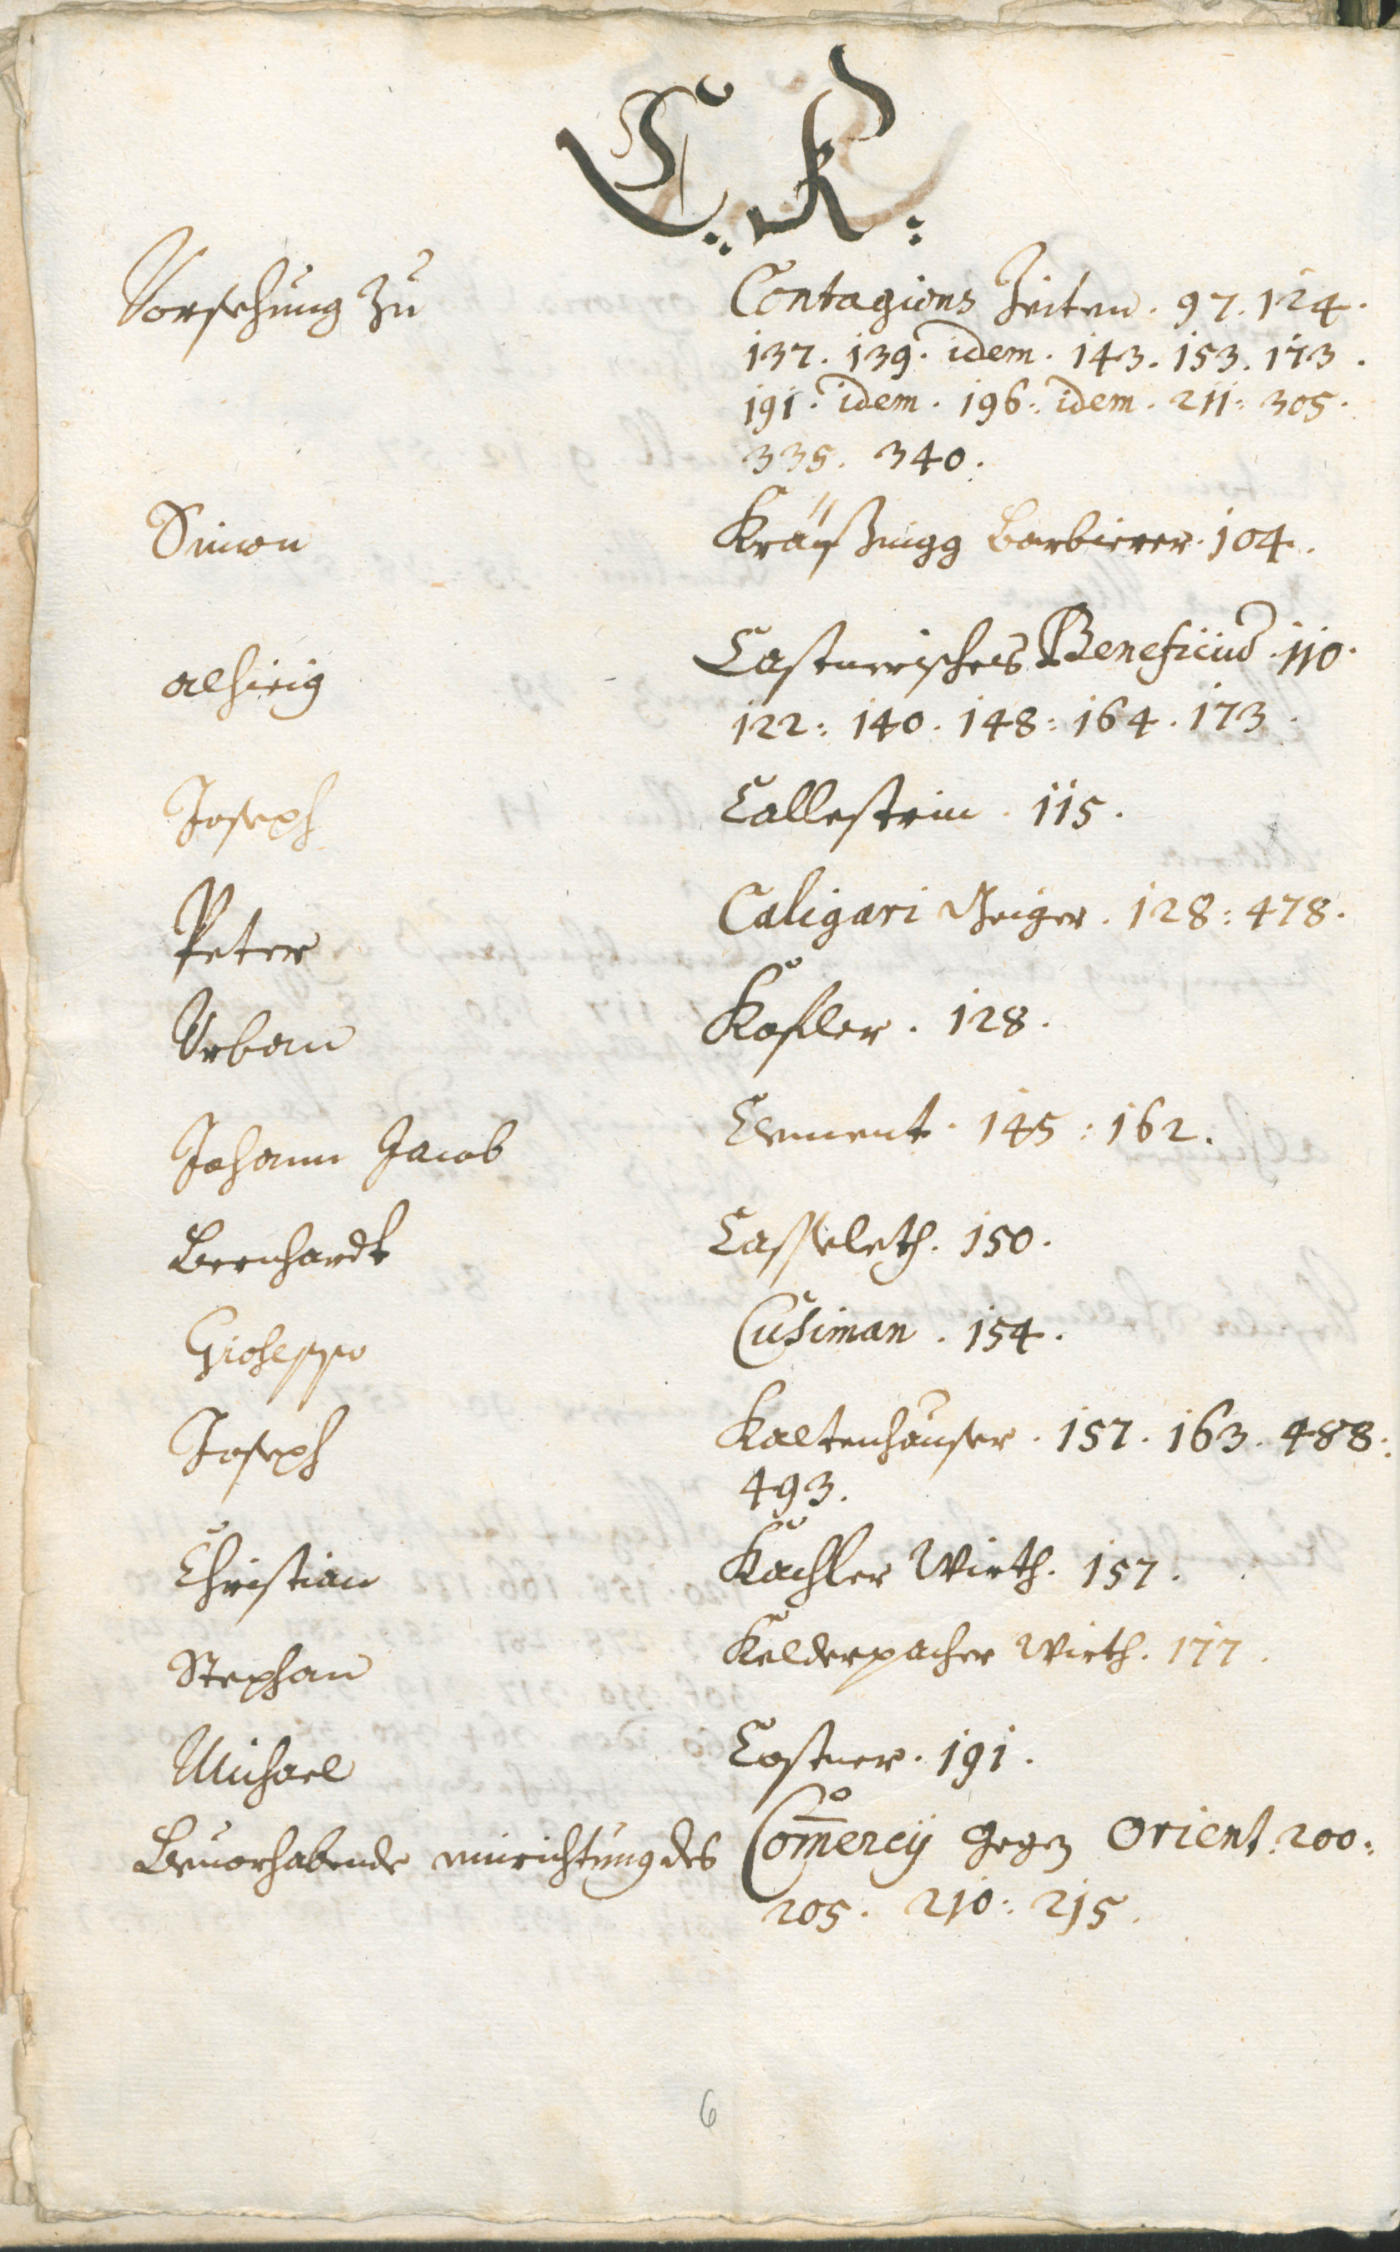 C. K.
Vorsehung zu Contagions Zeiten . 97. 124.
137. 139. idem. 143. 153. 173.
191. idem. 196: idem. 211: 305.
335. 340.
Simon Barbierer. 104.
alhieig Castnerisches Beneficium. 110.
122: 140. 148: 164. 173.
Joseph Callestrin. 115.
Peter Caligari Geiger. 128: 478.
Urban Kofler. 128.
Johann Jacob Clement. 145: 162.
Bernhardt Casseleth. 150.
Gioseppo Cusiman. 154.
Joseph Kaltenhauser. 157. 163. 488:
493.
Christian Kachler Wirth. 157.
Stephan Kelderpacher Wirth. 177.
Michael Costner. 191.
Bevorhabende einrichtung des Com̅ercij gegen Orient. 200:
205. 210: 215.
6